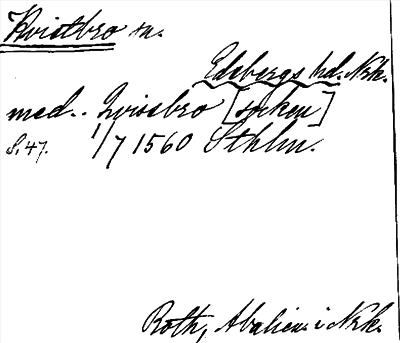 Kvistbro sn.
Edsbergs hd. Nrk.
med.. Qvissbro [socken]
S. 47. 1/7 1560 Sthlm.
Roth, Abalien. i Nrk.